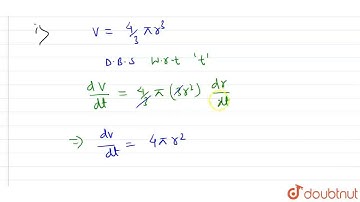 i) V = 4/3 πr³
D.B.S w.r.t 't'
dV/dt = 4/3 π (3r²) dr/dt
⇒ dv/dt = 4πr²
doubtnut